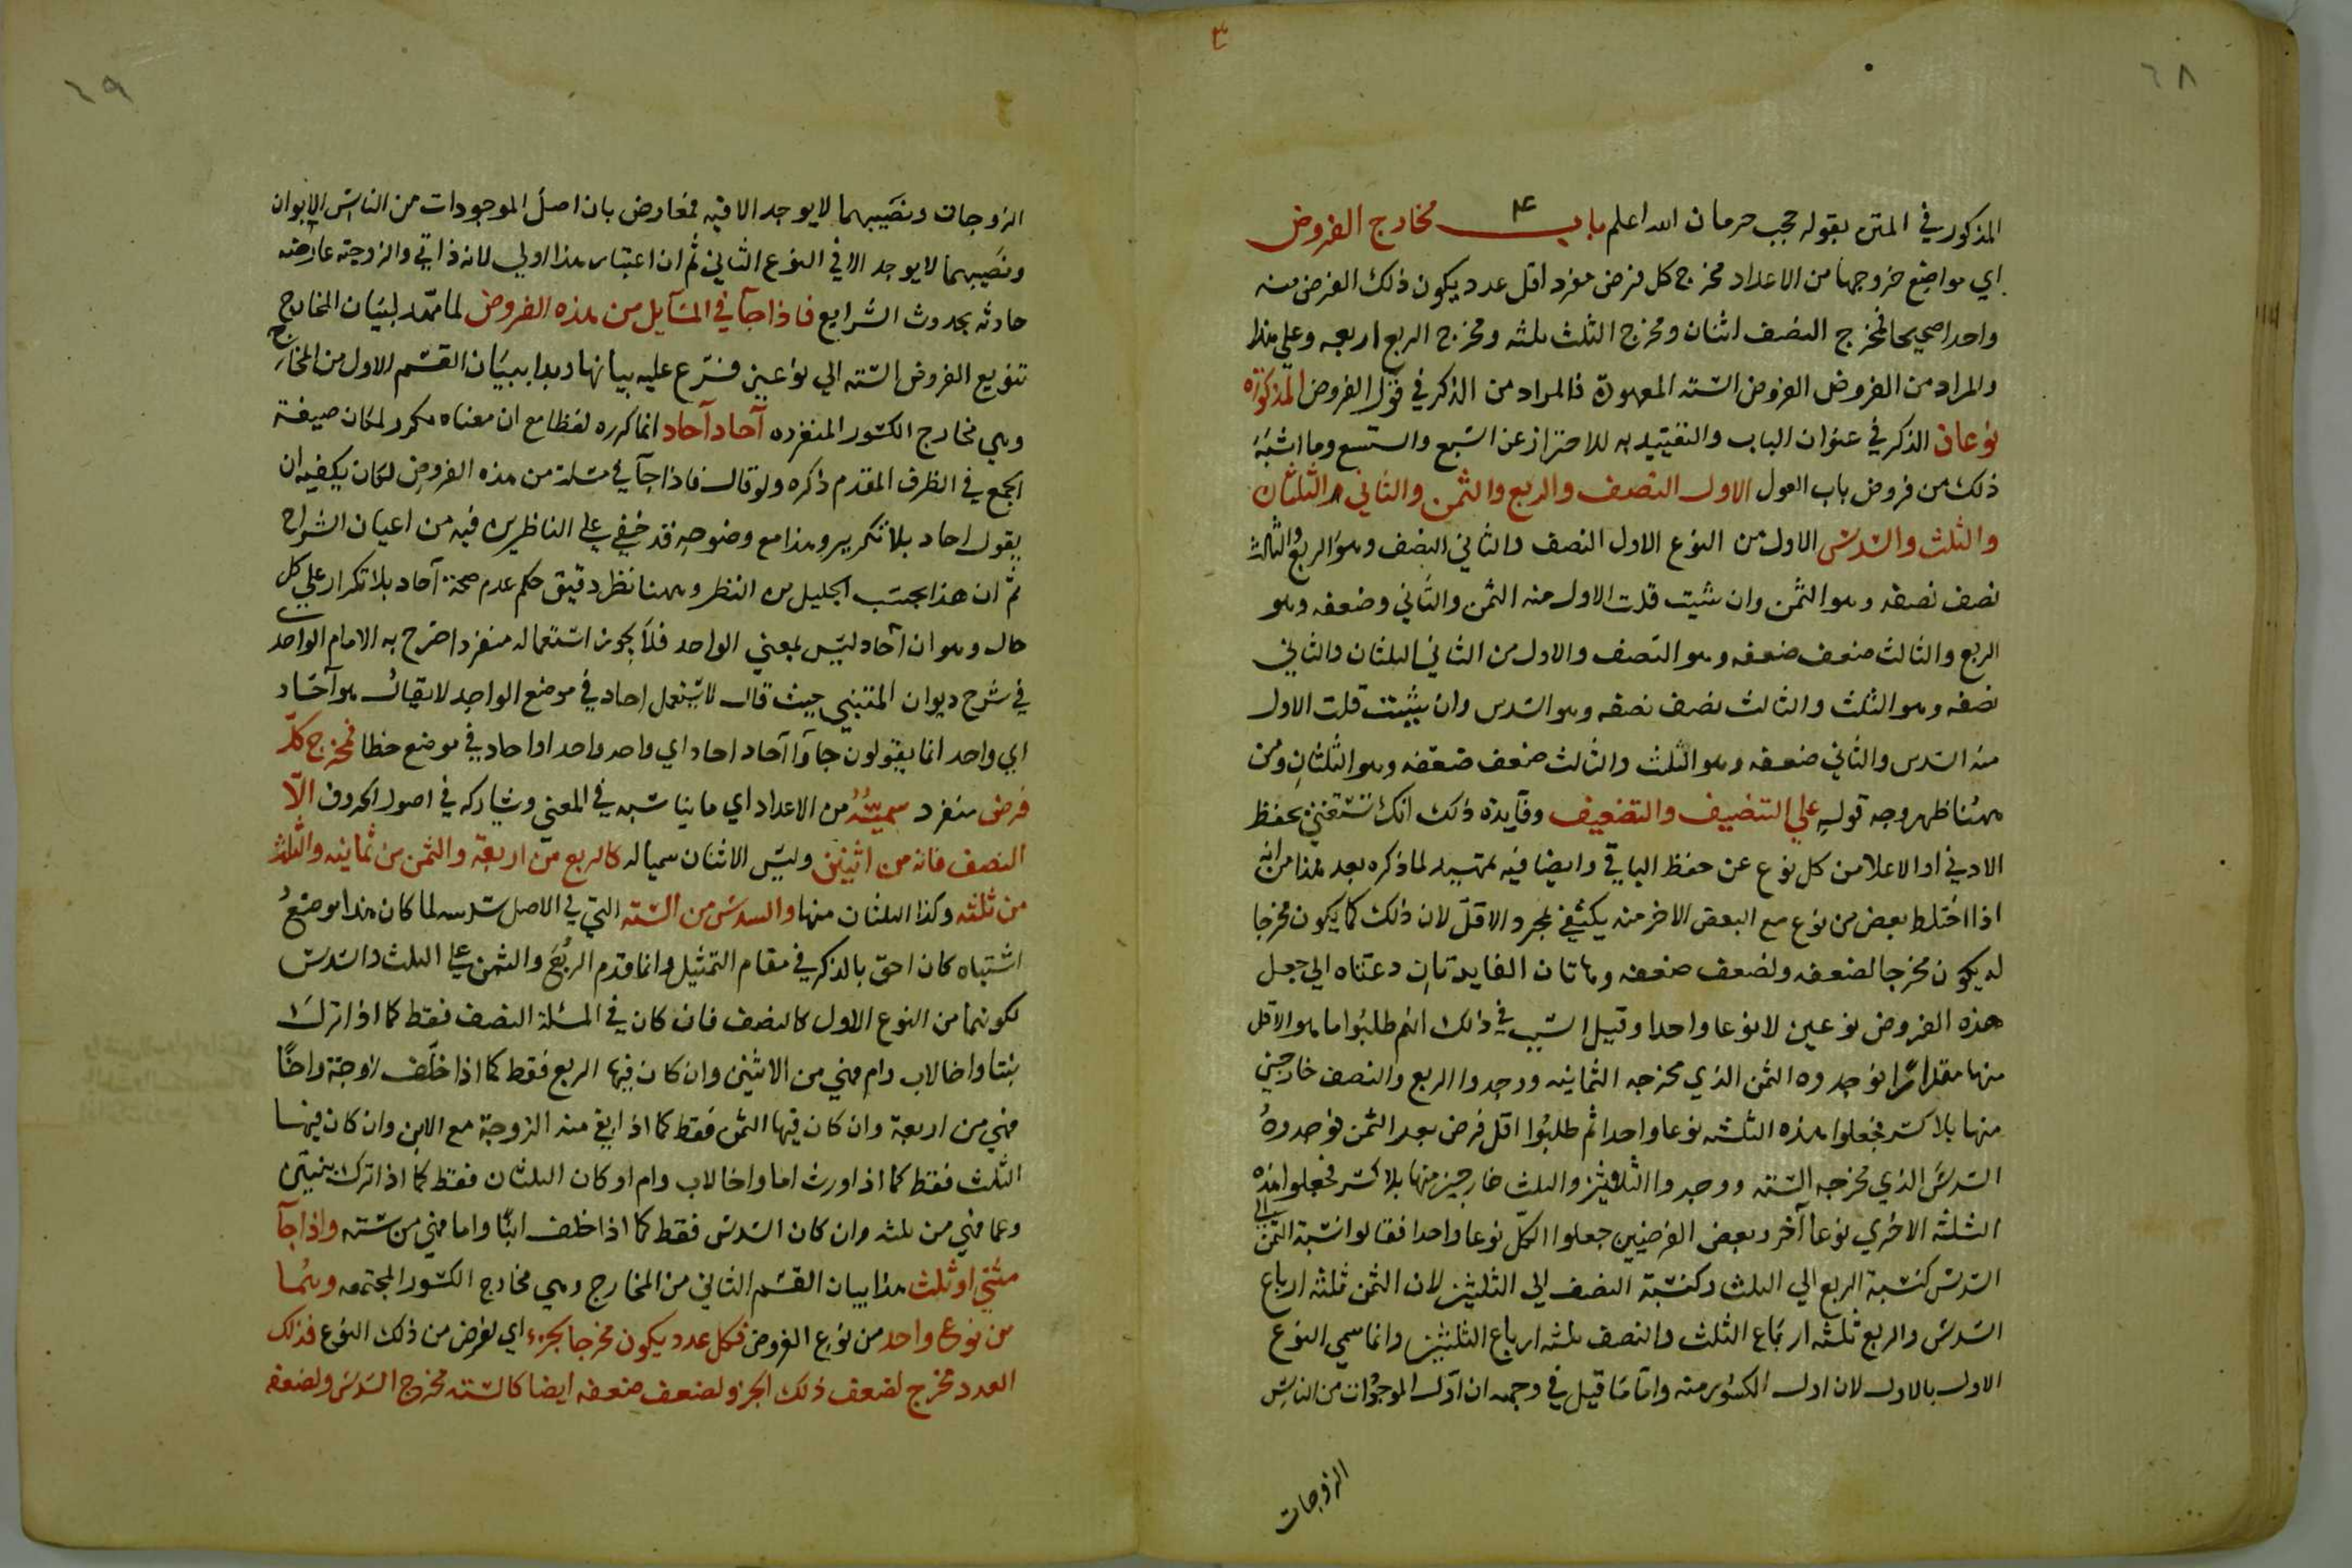 ٦٨
المذكور في المتن بقوله حجب حرمان الله اعلم باب مخارج الفروض
اي مواضع خروجها من الاعداد مخرج كل فرض مفرد اقل عدد يكون ذلك الفرض منه
واحدا صحيحا فمخرج النصف اثنان ومخرج الثلث ثلثه ومخرج الربع اربعه وعلي هذا
والمراد من الفروض الفروض السته المعهودة فالمراد من الذكر في قوله الفروض المذكورة
نوعان الذكر في عنوان الباب والتقييد به للاحتراز عن السبع والتسع وما اشبه
ذلك من فروض باب العول الاول النصف والربع والثمن والثاني الثلثان
والثلث والسدس الاول من النوع الاول النصف والثاني النصف وهو الربع والثالث
نصف نصفه وهو الثمن وان شيت قلت الاول منه الثمن والثاني وضعفه وهو
الربع والثالث ضعف ضعفه وهو النصف والاول من الثاني الثلثان والثاني
نصفه وهو الثلث والثالث نصف نصفه وهو السدس وان شيت قلت الاول
منه السدس والثاني ضعفه وهو الثلث والثالث ضعف ضعفه وهو الثلثان ومن
ههنا ظهر وجه قوله علي التنصيف والتضعيف وفايدة ذلك انك تستغني بحفظ
الادني او الاعلا من كل نوع عن حفظ الباقي وايضا فيه تمهيد لما ذكره بعد هذا من انه
اذا اختلط بعض من نوع مع البعض الاخر منه يكتفي بمجرد الاقل لان ذلك كما يكون مخرجا
له يكون مخرجا لضعفه ولضعف ضعفه وهاتان الفايدتان دعتاه الي جعل
هذه الفروض نوعين لا نوعا واحدا وقيل السبب في ذلك انهم طلبوا ما هو الاقل
منها مقدارا فوجدوه الثمن الذي مخرجه الثمانيه ووجدوا الربع والنصف خارجين
منها بلا كسر فجعلوا هذه الثلثه نوعا واحدا ثم طلبوا اقل فرض بعد الثمن فوجدوه
السدس الذي مخرجه السته ووجدوا الثلثين والثلث خارجين منها بلا كسر فجعلوا هذه
الثلثه الاخري نوعا آخر وبعض الفرضيين جعلوا الكل نوعا واحدا فقالوا نسبة الثمن الي
السدس كنسبة الربع الي الثلث وكنسبة النصف الي الثلثين لان الثمن ثلثه ارباع
السدس والربع ثلثه ارباع الثلث والنصف ثلثه ارباع الثلثين وانما سمي النوع
الاول بالاول لان اول الكسور منه واما ما قيل في وجهه ان اول الموجودات من الناس
الزوجات
٦٩
الزوجان ونصيبهما لا يوجد الا فيه فمعارض بان اصل الموجودات من الناس الابوان
ونصيبهما لا يوجد الا في النوع الثاني ثم ان اعتبار هذا اولي لانه ذاتي والزوجيه عارضه
حادثه بحدوث الشرايع فاذا جآ في المسايل من هذه الفروض لما مهد لبيان المخارج
تنويع الفروض السته الي نوعين فرع عليه بيانها وبدا ببيان القسم الاول من المخارج
وهي مخارج الكسور المنفرده آحاد آحاد انما كرره لفظا مع ان معناه مكرر لمكان صيغة
الجمع في الظرف المقدم ذكره ولو قال فاذا جآ في مسئلة من هذه الفروض لكان يكفيه ان
يقول احاد بلا تكرير وهذا مع وضوحه قد خفي علي الناظرين فيه من اعيان الشراح
ثم ان هذا بحسب الجليل من النظر وههنا نظر دقيق حكم عدم صحة آحاد بلا تكرار علي كل
حال وهو ان آحاد ليس بمعني الواحد فلا يجوز استعماله منفردا صرح به الامام الواحدي
في شرح ديوان المتنبي حيث قال لا يستعمل احاد في موضع الواحد لا يقال هو آحاد
اي واحد انما يقولون جاوآ آحاد احاد اي واحد واحد او احاد في موضع خطا فمخرج كل
فرض منفرد سميه من الاعداد اي ما يناسبه في المعني ويشاركه في اصول الحروف الا
النصف فانه من اثنين وليس الاثنان سمياله كالربع من اربعة والثمن من ثمانيه والثلث
من ثلثه وكذا الثلثان منها والسدس من السته التي في الاصل سدسه لما كان هذا موضع
اشتباه كان احق بالذكر في مقام التمثيل وانما قدم الربع والثمن علي الثلث والسدس
لكونهما من النوع الاول كالنصف فان كان في المسئلة النصف فقط كما اذا ترك
بنتا واخا لاب وام فهي من الاثنين وان كان فيها الربع فقط كما اذا خلف زوجة واخا
فهي من اربعة وان كان فيها الثمن فقط كما اذا بقي منه الزوجة مع الابن وان كان فيها
الثلث فقط كما اذا اورث اما واخا لاب وام او كان الثلثان فقط كما اذا ترك بنتين
وعما فهي من ثلثه وان كان السدس فقط كما اذا خلف ابنا واما فهي من سته واذا جآ
مثني او ثلث هذا بيان القسم الثاني من المخارج وهي مخارج الكسور المجتمعه وهما
من نوع واحد من نوع الفروض فكل عدد يكون مخرجا لجزء اي لفرض من ذلك النوع فذلك
العدد مخرج لضعف ذلك الجزء ولضعف ضعفه ايضا كالسته مخرج السدس ولضعفه